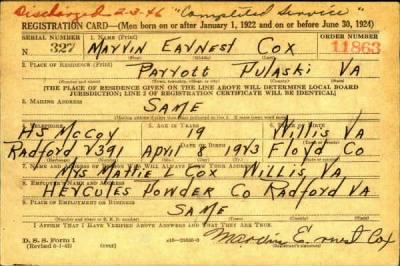 Discharged 2-3-46 "Completed Service"
REGISTRATION CARD—(Men born on or after January 1, 1922 and on or before June 30, 1924)
SERIAL NUMBER 1. NAME (Print) ORDER NUMBER
N 327 MARVIN EARNEST COX 11863
2. PLACE OF RESIDENCE (Print)
PARROTT PULASKI VA
[THE PLACE OF RESIDENCE GIVEN ON THE LINE ABOVE WILL DETERMINE LOCAL BOARD
JURISDICTION; LINE 2 OF REGISTRATION CERTIFICATE WILL BE IDENTICAL]
3. MAILING ADDRESS
SAME
4. TELEPHONE 5. AGE IN YEARS
HS McCOY 19 WILLIS VA
DATE OF BIRTH
RADFORD 2391 APRIL 8 1923 FLOYD CO
MRS MATTIE L COX WILLIS VA
8. EMPLOYER'S NAME AND ADDRESS
HERCULES POWDER CO RADFORD VA
9. PLACE OF EMPLOYMENT OR BUSINESS
SAME
I AFFIRM THAT I HAVE VERIFIED ABOVE ANSWERS AND THAT THEY ARE TRUE.
D. S. S. Form 1
Marvin Ernest Cox